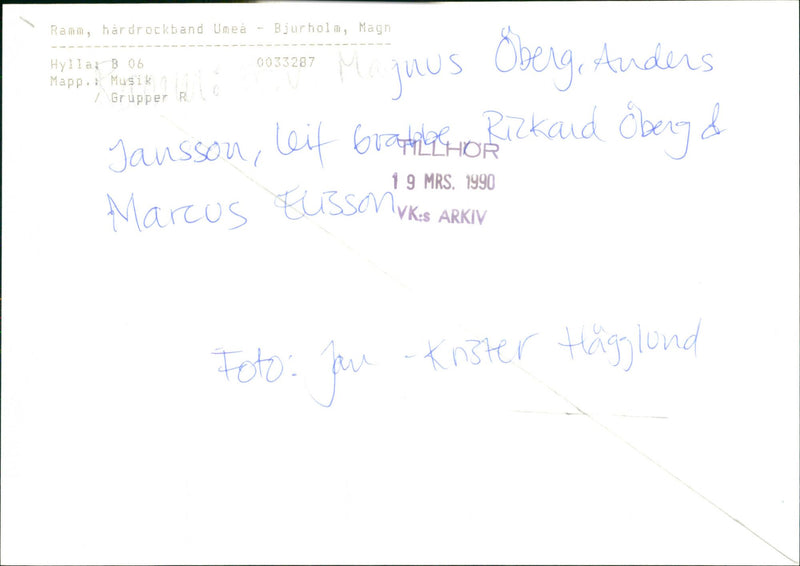 Ramm, hårdrockband Umeå - Bjurholm, Magn
Hylla: B 06 0033287
Mapp.: Musik
/ Grupper R
Magnus Öberg, Anders
Jansson, Leif Grabbe, Rickard Öberg &
Marcus Elisson
TILLHÖR
19 MRS. 1990
VK:s ARKIV
Foto: Jan-Krister Hägglund